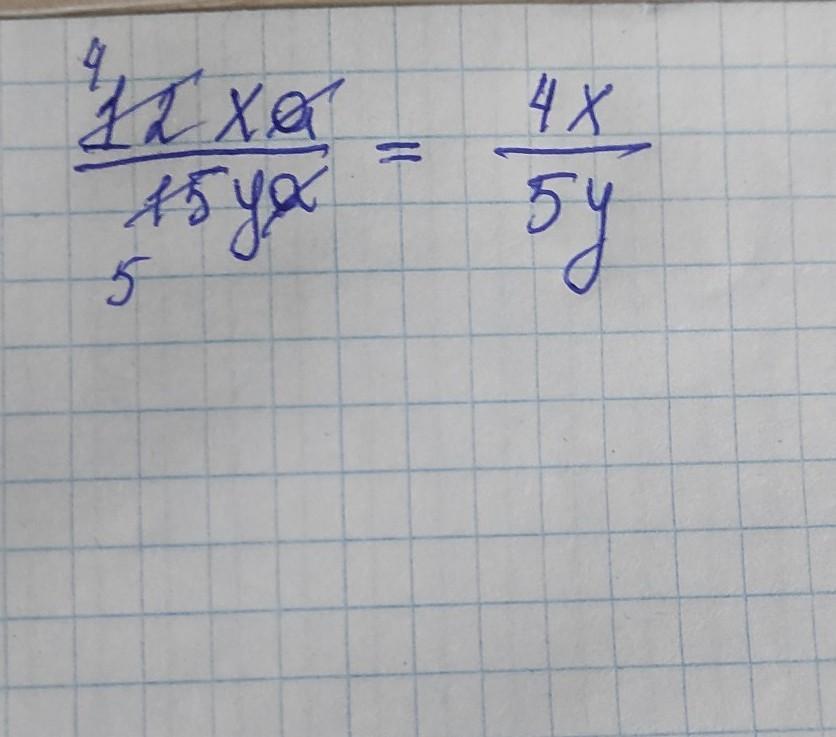 4
12xa / 15ya = 4x / 5y
5